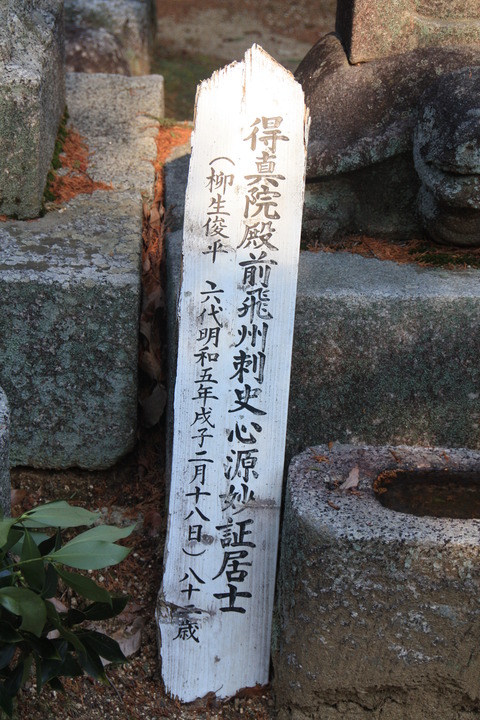 得真院殿前飛州刺史心源妙証居士
(柳生俊平 六代明和五年戌子二月十八日) 八十二歳